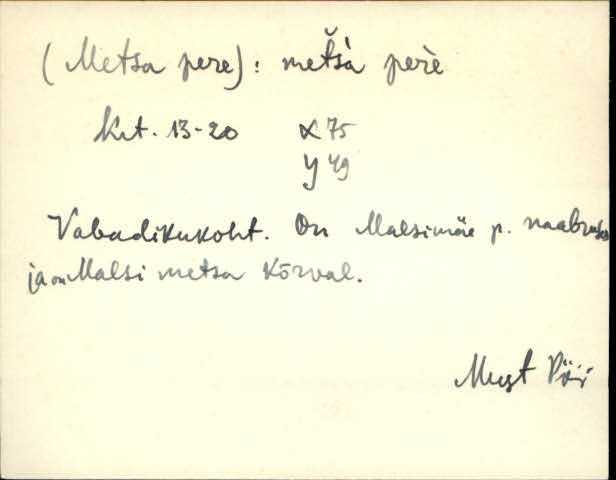 (Metsa pere): metšà perè
Krt. 13-20 X 75
Y 49
Vabadikukoht. On Malsimäe p. naabruses
ja on Malsi metsa kõrval.
Must